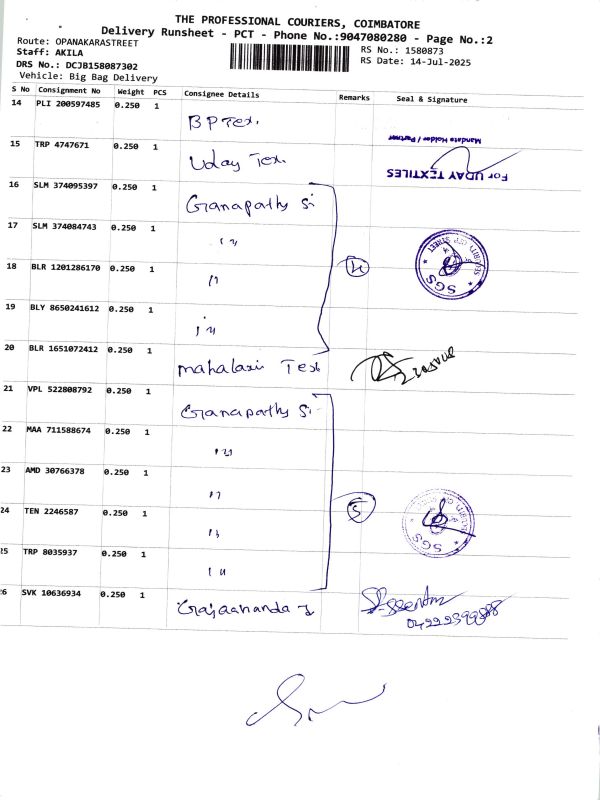 THE PROFESSIONAL COURIERS, COIMBATORE
Delivery Runsheet - PCT - Phone No.:9047080280 - Page No.:2
Route: OPANAKARASTREET
RS No.: 1580873
Staff: AKILA
RS Date: 14-Jul-2025
DRS No.: DCJB158087302
Vehicle: Big Bag Delivery
S No Consignment No Weight PCS Consignee Details Remarks Seal & Signature
14 PLI 200597485 0.250 1 BP Tex.
Mandate Holder / Partner
15 TRP 4747671 0.250 1 Uday Tex.
For UDAY TEXTILES
16 SLM 374095397 0.250 1 Ganapathy Si
17 SLM 374084743 0.250 1 ''
SGS
18 BLR 1201286170 0.250 1 '' 4
19 BLY 8650241612 0.250 1 ''
20 BLR 1651072412 0.250 1 mahalaxi Text
21 VPL 522808792 0.250 1 Ganapathy Si
22 MAA 711588674 0.250 1 ''
23 AMD 30766378 0.250 1 ''
24 TEN 2246587 0.250 1 '' 5
SGS
25 TRP 8035937 0.250 1 ''
26 SVK 10636934 0.250 1